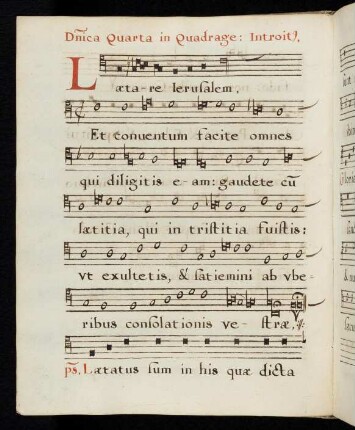 Dñica Quarta in Quadrage: Introit9.
Læta-re Ierusalem,
Et conuentum facite omnes
qui diligitis e-am: gaudete cū
lætitia, qui in tristitia fuistis:
vt exultetis, & satiemini ab vbe-
ribus consolationis ve- stræ.
ps. Lætatus sum in his quæ dicta